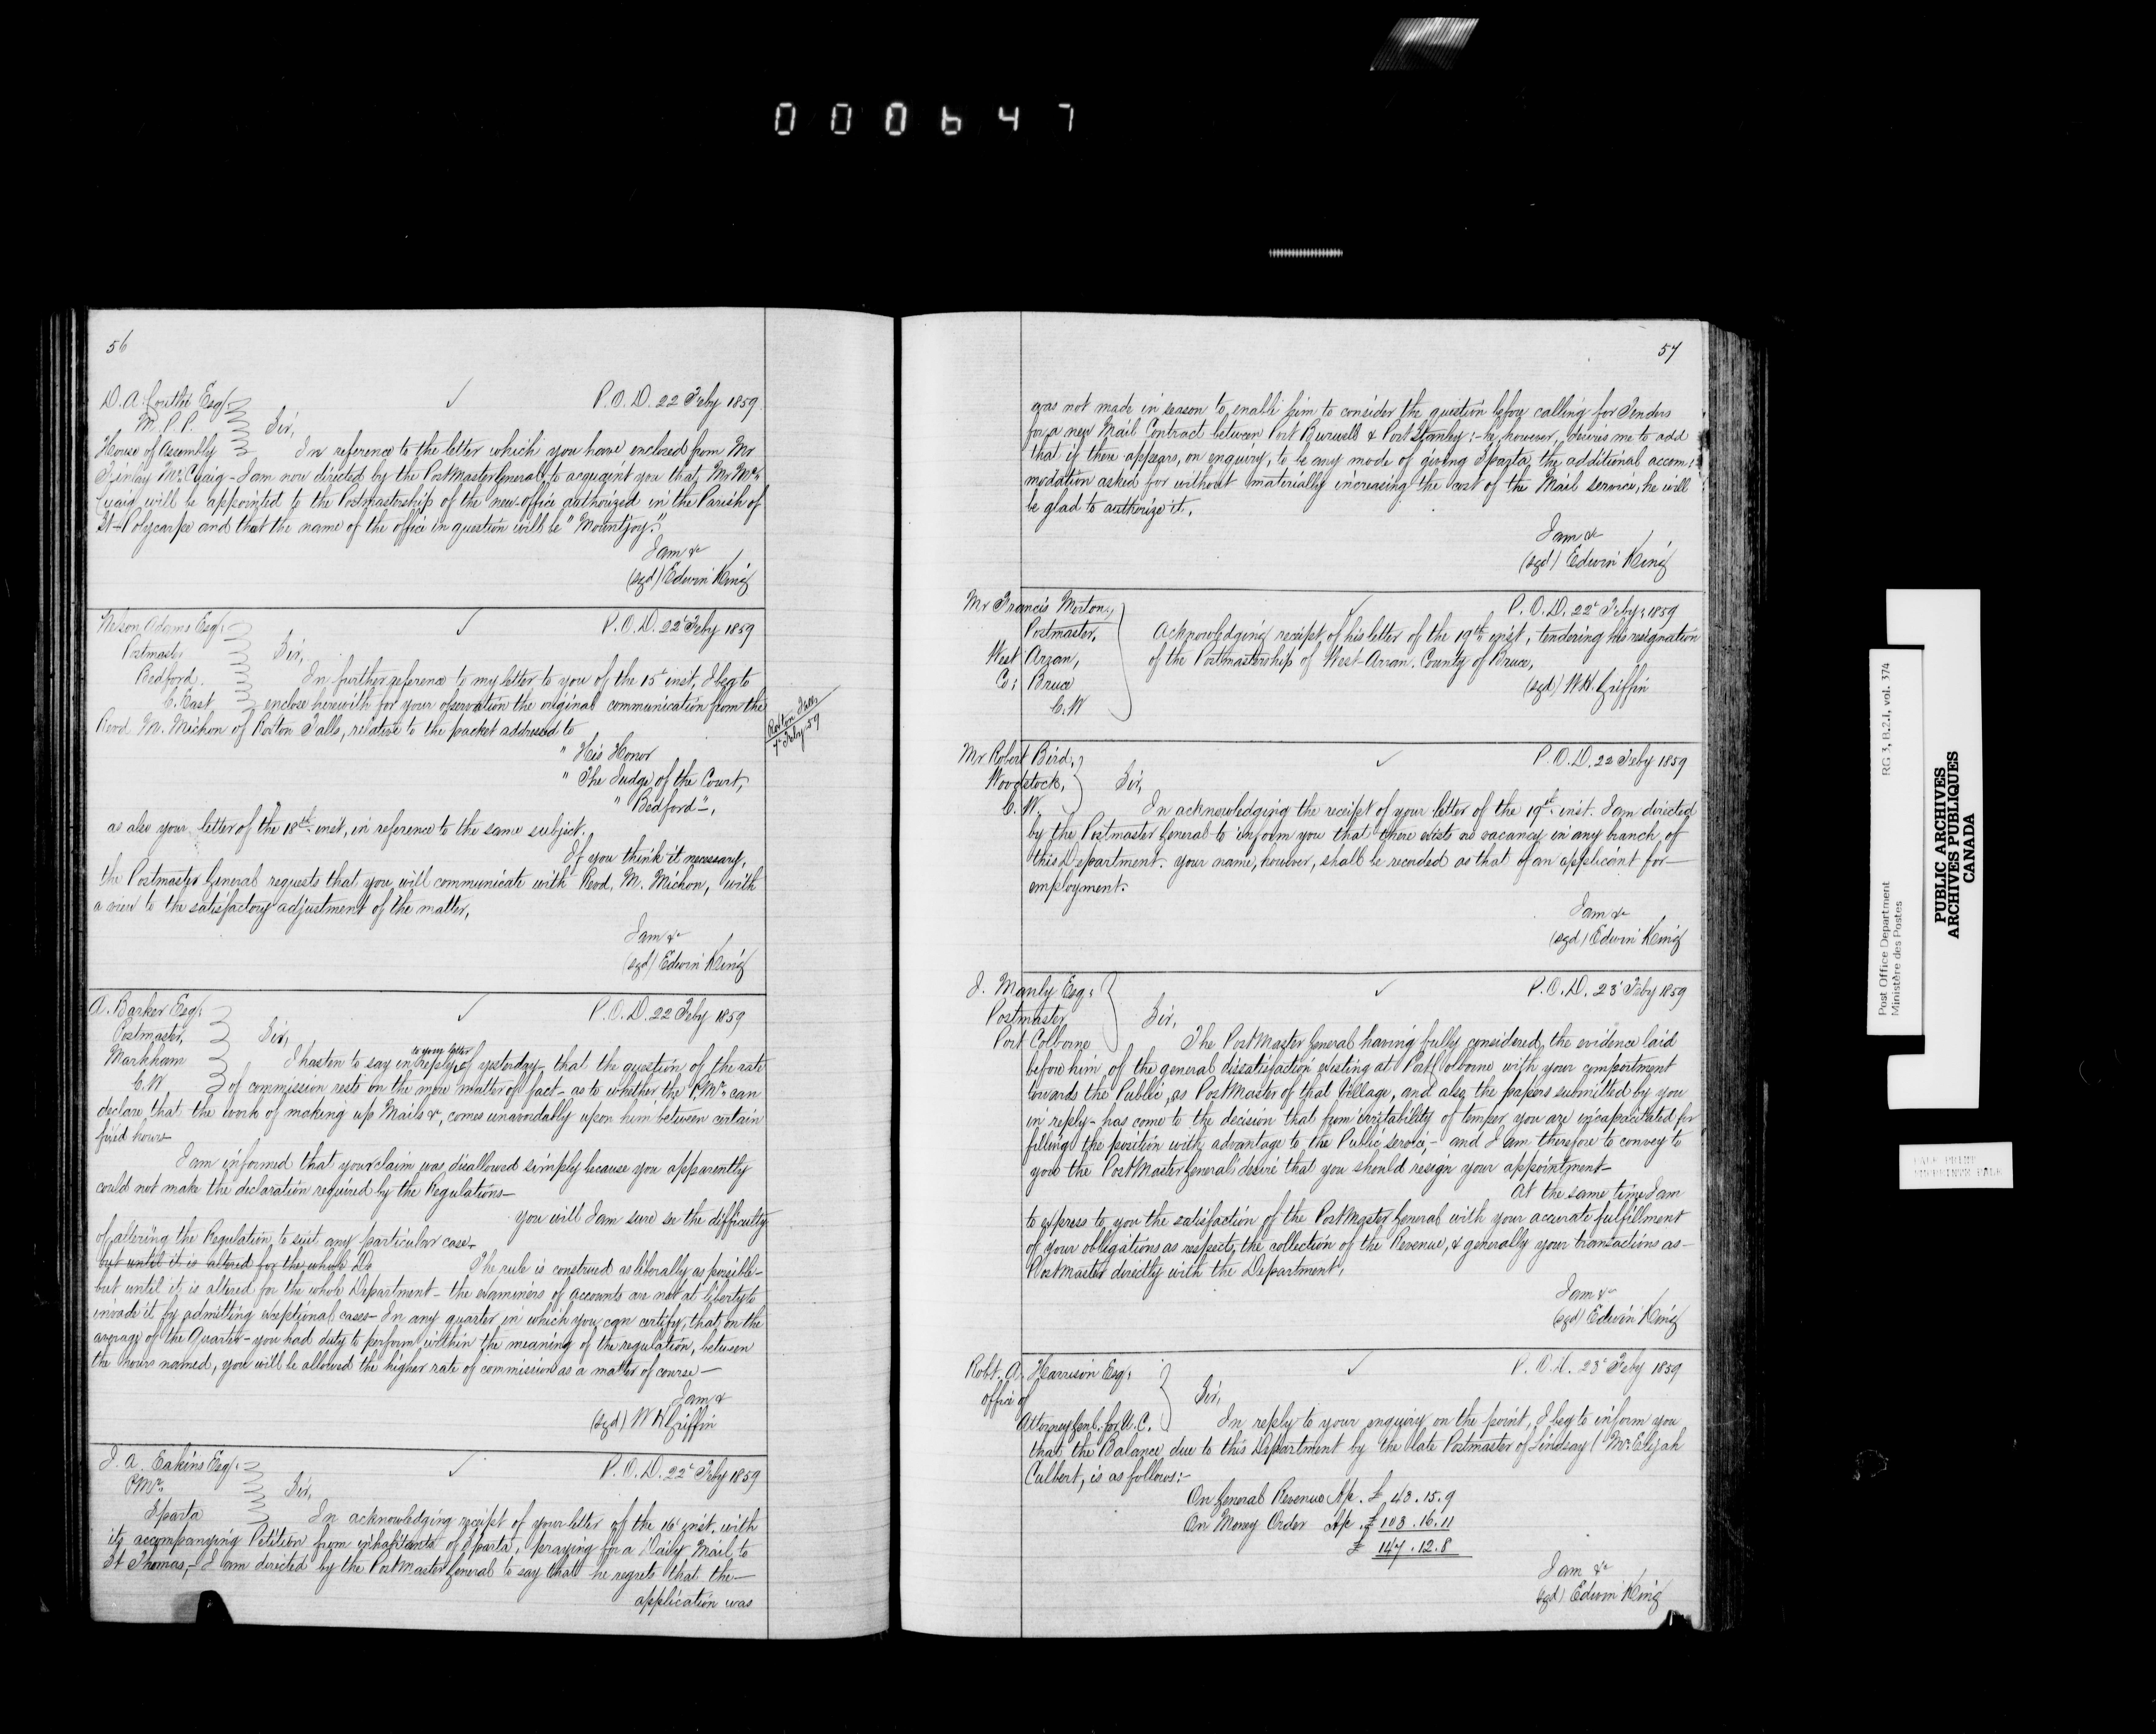 000647
56
D. A. Coutlee Esq.
P.O.D. 22 Feby 1859
M.P.P.
Sir,
House of Assembly
In reference to the letter which you have enclosed from Mr
Finlay McCuaig - I am now directed by the PostMaster General, to acquaint you that, Mr Mc-
Cuaig will be appointed to the Postmastership of the new office authorized in the Parish of
St-Polycarpe and that the name of the office in question will be "Mountjoy."
I am &c
(sgd) Edwin King
Nelson Adams Esq:
P.O.D. 22d Feby 1859
Postmaster
Sir,
Bedford.
In further reference to my letter to you of the 15th inst, I beg to
C. East
enclose herewith for your observation the original communication from the
Revd. M. Michon of Roxton Falls, relative to the packet addressed to
Roxton Falls
7th Feby 59
" His Honor
" The Judge of the Court,
" Bedford",
as also your letter of the 18th inst, in reference to the same subject.
If you think it necessary,
the Postmaster General requests that you will communicate with Revd. M. Michon, with
a view to the satisfactory adjustment of the matter,
I am &c
(sgd) Edwin King
A. Barker Esq:
P.O.D. 22 Feby 1859
Postmaster,
Sir,
Markham
I hasten to say in reply to your letter of yesterday - that the question of the rate
C.W.
of commission rests on the mere matter of fact - as to whether the P.Mr. can
declare that the work of making up Mails &c, comes unavoidably upon him between certain
fixed hours
I am informed that your claim was disallowed simply because you apparently
could not make the declaration required by the Regulations -
You will I am sure see the difficulty
of altering the Regulation to suit any particular case.
but until it is altered for the whole De
The rule is construed as liberally as possible -
but until it is altered for the whole Department - the examiners of accounts are not at liberty to
invade it by admitting exceptional cases - In any quarter in which you can certify, that, on the
average of the Quarter - you had duty to perform, within the meaning of the regulation, between
the hours named, you will be allowed the higher rate of commission as a matter of course -
I am &
(sgd) W H Griffin
J. A. Eakins Esq:
P.O.D. 22d Feby 1859
P.Mr.
Sir,
Sparta
In acknowledging receipt of your letter of the 16 inst. with
its accompanying Petition from inhabitants of Sparta, praying for a Daily Mail to
St Thomas, - I am directed by the PostMaster General to say that he regrets that the -
application was
57
was not made in season to enable him to consider the question before calling for Tenders
for a new Mail Contract between Port Burwell & Port Stanley: - he, however, desires me to add
that if there appears, on enquiry, to be any mode of giving Sparta the additional accom:
modation asked for without materially increasing the cost of the Mail service, he will
be glad to authorize it.
I am &c
(sgd) Edwin King
Mr Francis Morton,
P.O.D. 22d Feby, 1859
Postmaster,
Acknowledging receipt of his letter of the 19th inst, tendering his resignation
West Arran,
of the Postmastership of West-Arran. County of Bruce,
Co: Bruce
(sgd) W.H. Griffin
C.W
Mr Robert Bird,
P.O.D. 22 Feby 1859
Woodstock,
Sir,
C.W.
In acknowledging the receipt of your letter of the 19th inst. I am directed
by the Postmaster General to inform you that there exists no vacancy in any branch of
this Department. Your name, however, shall be recorded as that of an applicant for -
employment.
I am &c
(sgd) Edwin King
J. Manly Esq:
P.O.D. 23d Feby 1859
Postmaster
Sir,
Port Colborne
The PostMaster General having fully considered, the evidence laid
before him of the general dissatisfaction existing at Port Colborne with your comportment
towards the Public, as PostMaster of that Village, and also, the papers submitted by you
in reply - has come to the decision that from irritability of temper you are incapacitated for
filling the position with advantage to the Public service, - and I am therefore to convey to
you the PostMaster General's desire that you should resign your appointment -
At the same time I am
to express to you the satisfaction of the PostMaster General with your accurate fulfillment
of your obligations as respects, the collection of the Revenue, & generally your transactions as -
PostMaster directly with the Department,
I am &c
(sgd) Edwin King
Robt. A. Harrison Esq:
P.O.D. 23d Feby 1859
Office of
Sir,
Attorney Genl. for U.C.
In reply to your enquiry on the point, I beg to inform you
that, the Balance due to this Department by the late Postmaster of Lindsay (Mr. Elijah
Culbert, is as follows:-
On General Revenue A/c. £ 43.15.9
On Money Order A/c. £ 103.16.11
£ 147.12.8
I am &c
(sgd) Edwin King
Post Office Department
Ministère des Postes
RG 3, B.2.1, vol. 374
PUBLIC ARCHIVES
ARCHIVES PUBLIQUES
CANADA